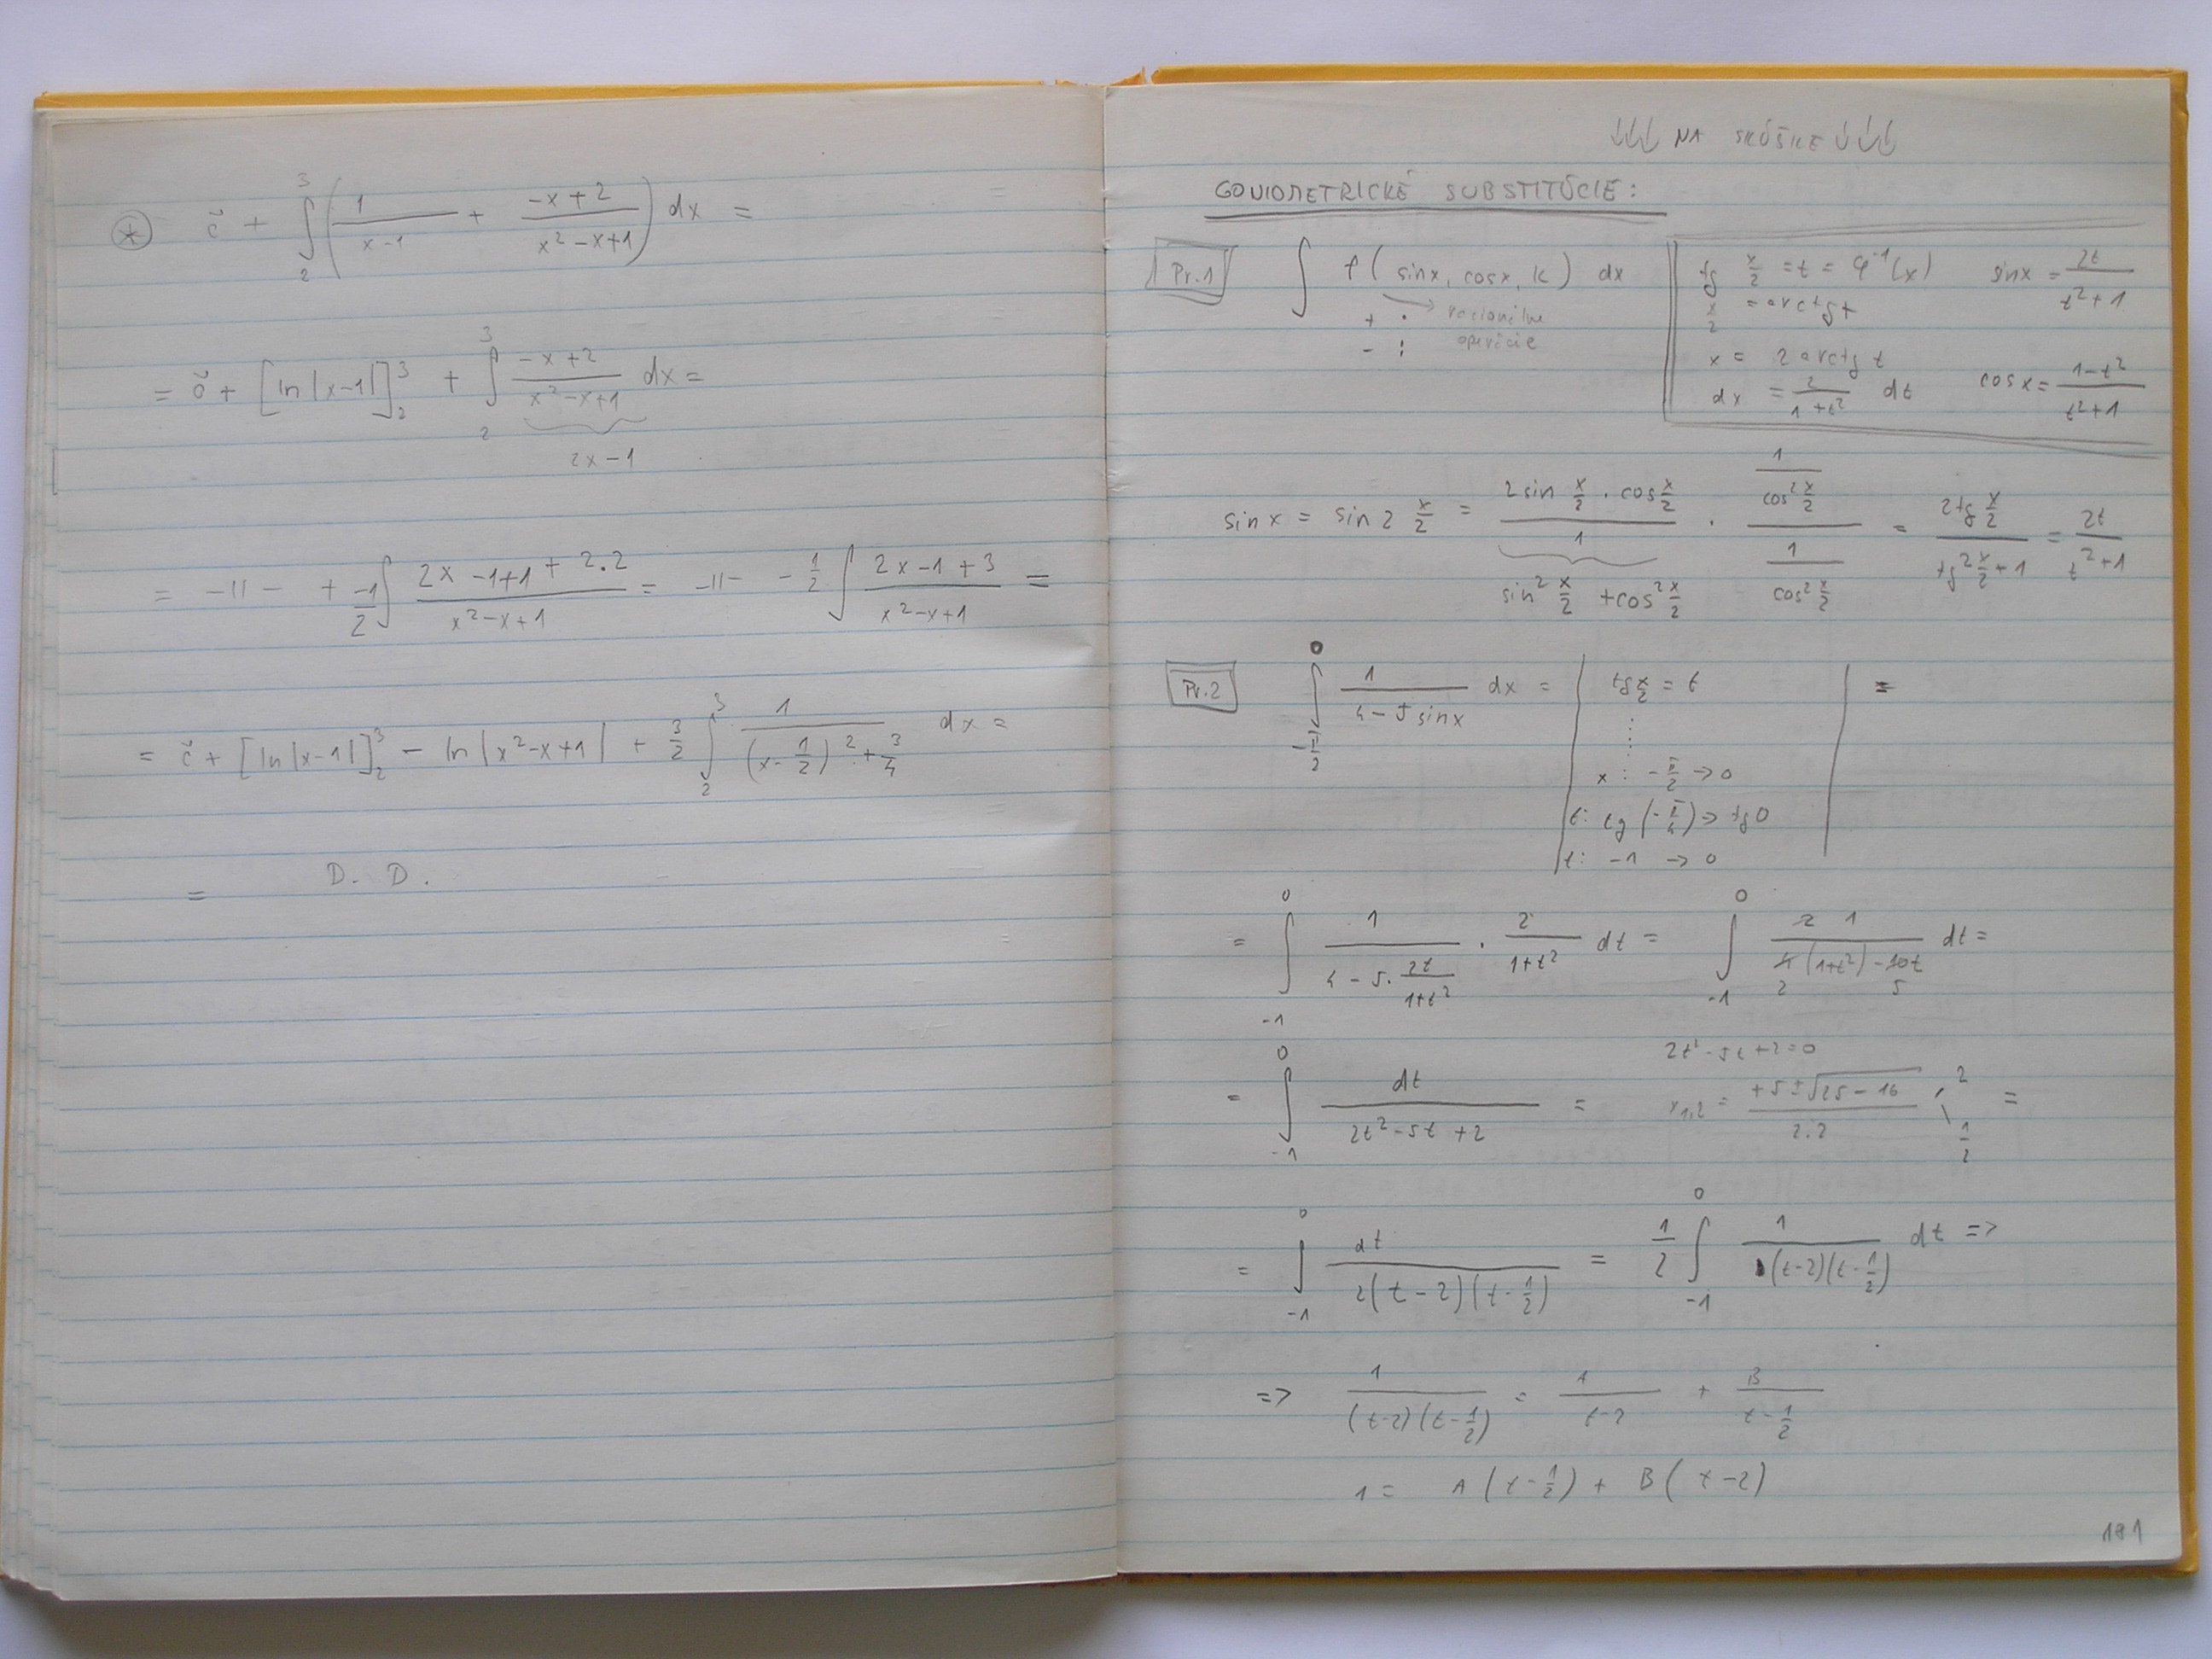 ⊛ c̃ + ∫₂³ ( 1/(x-1) + (-x+2)/(x²-x+1) ) dx =
= c̃ + [ln|x-1|]₂³ + ∫₂³ (-x+2)/(x²-x+1) dx =
2x-1
= -11- + -1/2 ∫ (2x-1+1+2.2)/(x²-x+1) = -11- - 1/2 ∫ (2x-1+3)/(x²-x+1) =
= c̃ + [ln|x-1|]₂³ - ln|x²-x+1| + 3/2 ∫₂³ 1/((x-1/2)²+3/4) dx =
= D. D.
↓↓↓ NA SKÚŠKE ↓↓↓
GONIOMETRICKÉ SUBSTITÚCIE:
Pr.1 ∫ f(sinx, cosx, k) dx
+ · → racionálne
- : operácie
tg x/2 = t = φ⁻¹(x) sinx = 2t/(t²+1)
x/2 = arctgt
x = 2 arctg t
dx = 2/(1+t²) dt cosx = (1-t²)/(t²+1)
sinx = sin 2 x/2 = (2sin x/2 . cos x/2)/1 . (1/cos² x/2)/(1/cos² x/2) = (2tg x/2)/(tg² x/2 + 1) = 2t/(t²+1)
sin² x/2 + cos² x/2
Pr.2 ∫_{-π/2}^0 1/(4-5sinx) dx = | tg x/2 = t | =
⋮
x: -π/2 -> 0
t: tg(-π/4) -> tg0
t: -1 -> 0
= ∫_{-1}^0 1/(4-5.2t/(1+t²)) . 2/(1+t²) dt = ∫_{-1}^0 2 1/(4(1+t²)-10t) dt =
2 5
2t²-5t+2=0
= ∫_{-1}^0 dt/(2t²-5t+2) = x₁,₂ = (+5±√(25-16))/(2.2) 2 1/2 =
= ∫_{-1}^0 dt/(2(t-2)(t-1/2)) = 1/2 ∫_{-1}^0 1/((t-2)(t-1/2)) dt =>
=> 1/((t-2)(t-1/2)) = A/(t-2) + B/(t-1/2)
1 = A(t-1/2) + B(t-2)
191